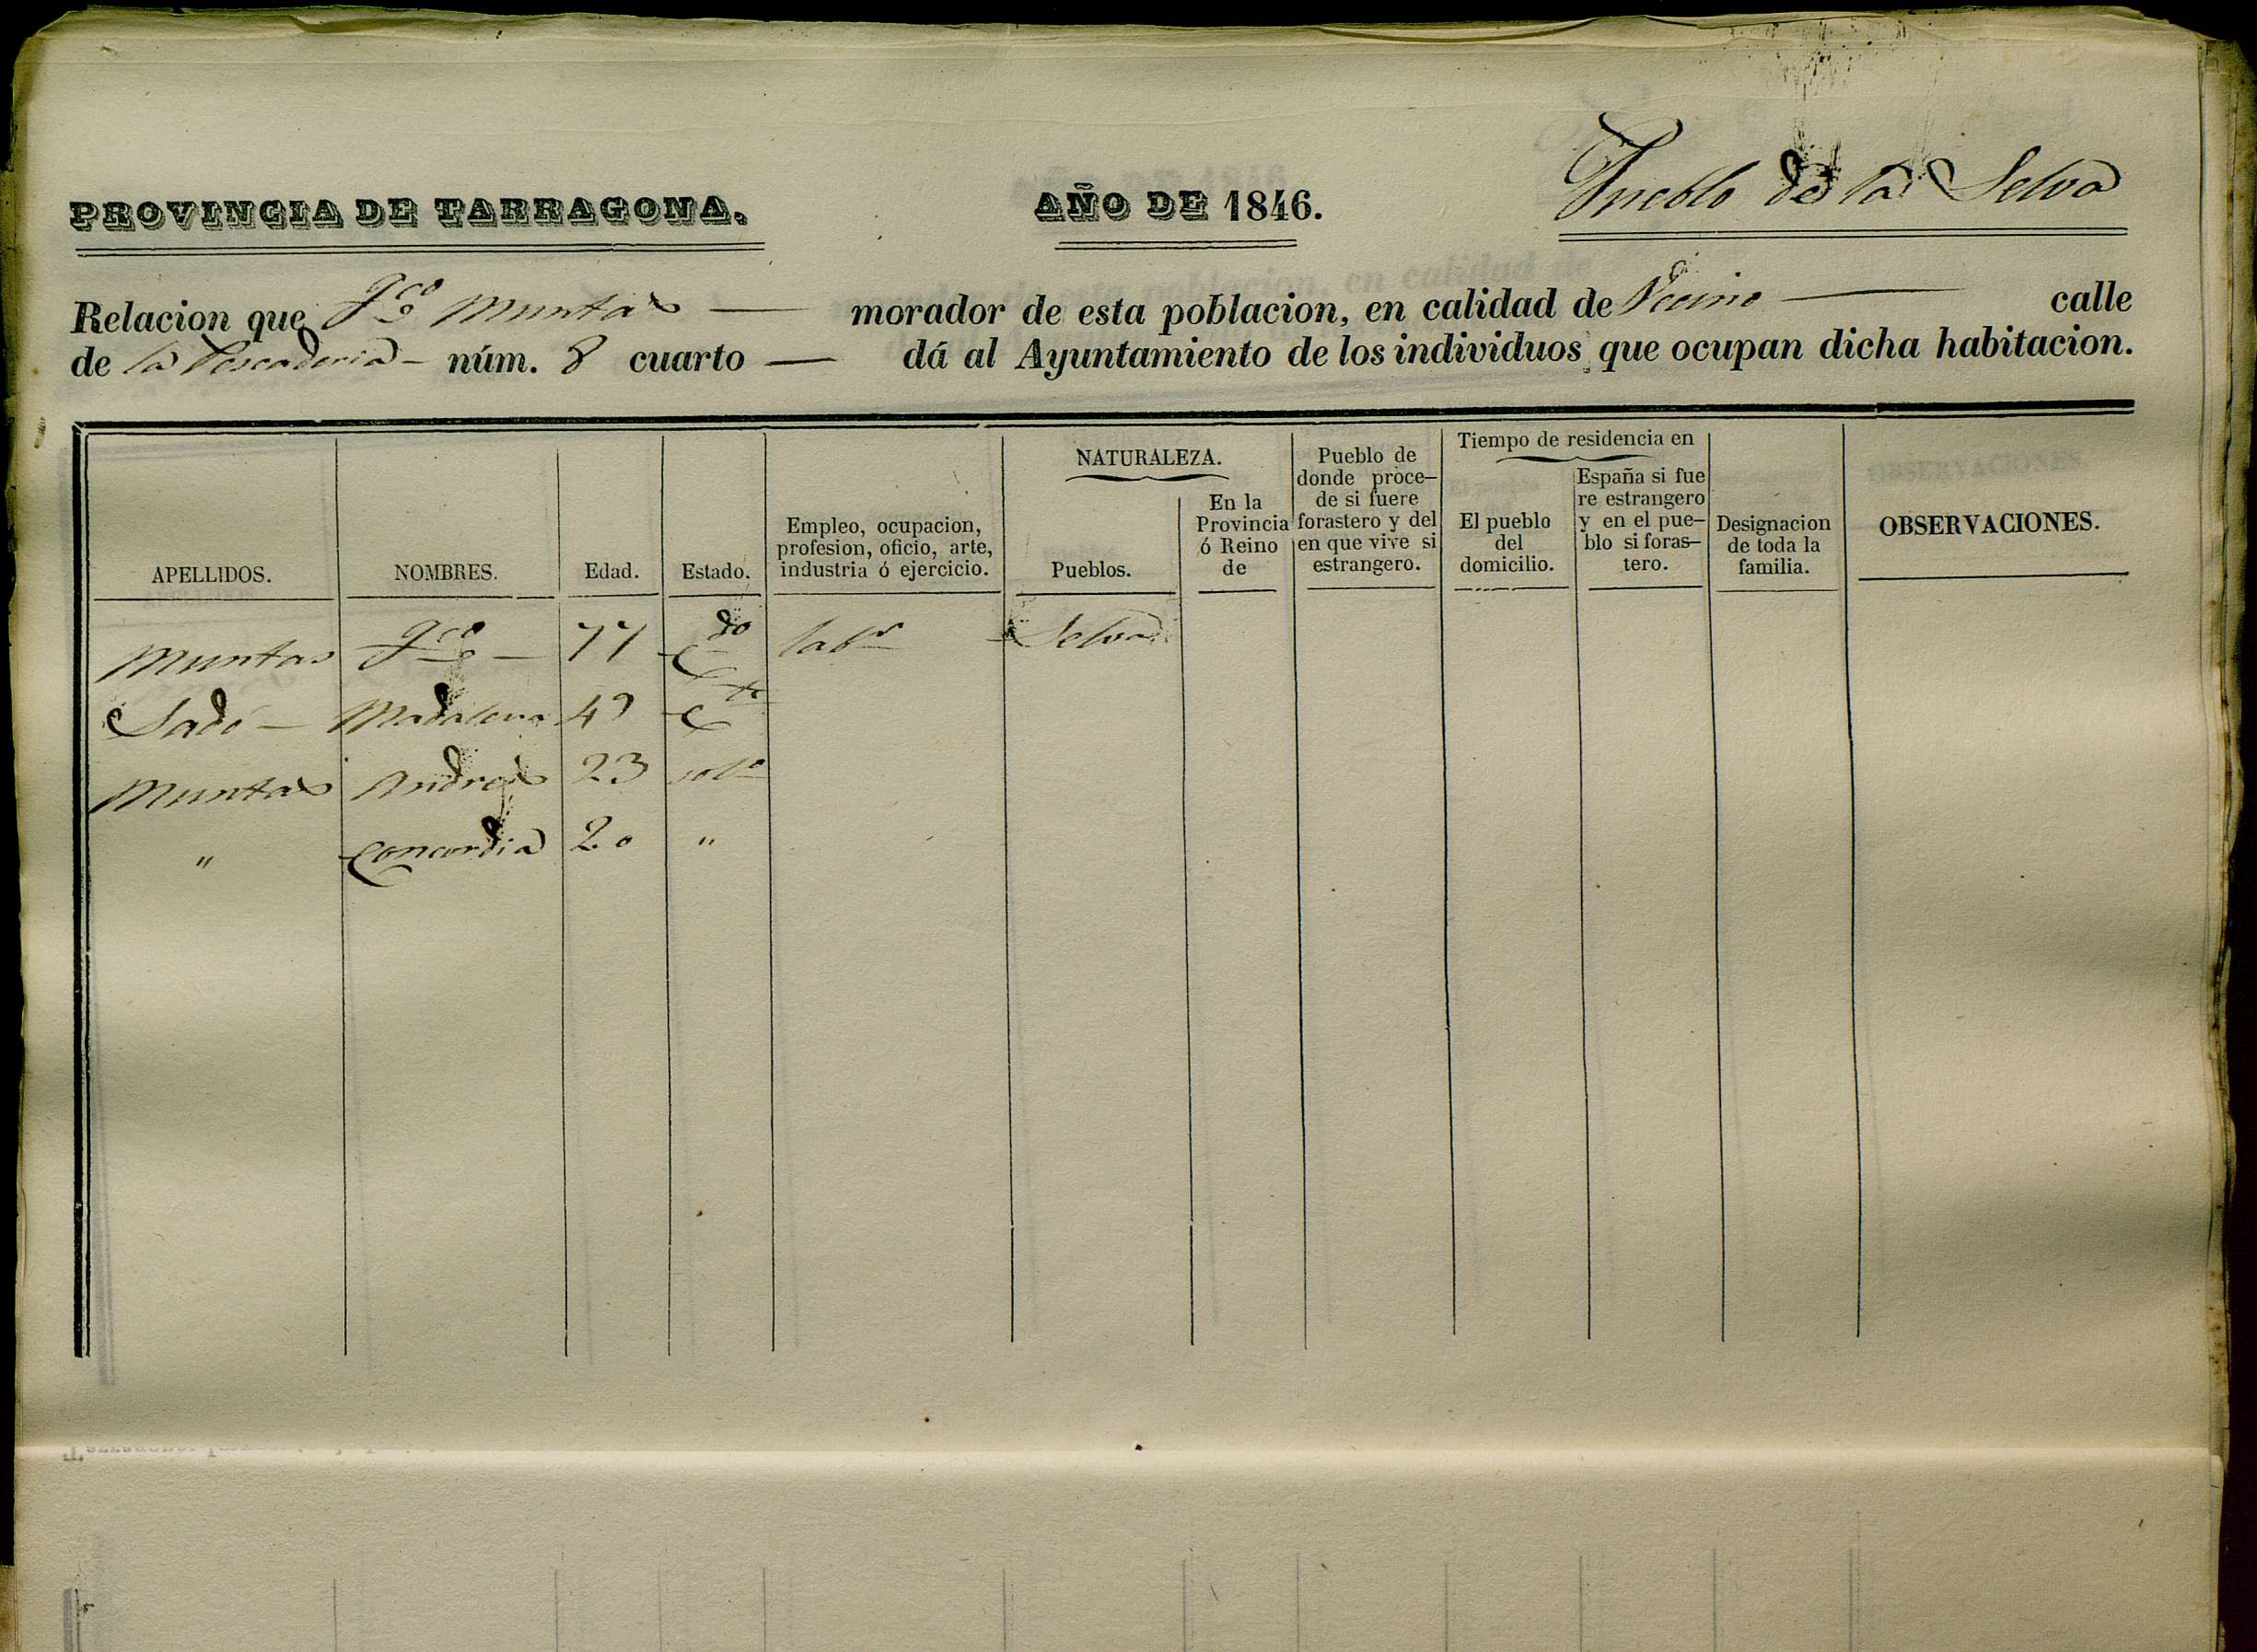 PROVINCIA DE TARRAGONA. AÑO DE 1846. Pueblo de la Selva
Relacion que Fco Muntas — morador de esta poblacion, en calidad de Vecino — calle
de la Pescaderia - núm. 8 cuarto — dá al Ayuntamiento de los individuos que ocupan dicha habitacion.
APELLIDOS.
NOMBRES.
Edad.
Estado.
Empleo, ocupacion,
profesion, oficio, arte,
industria ó ejercicio.
NATURALEZA.
Pueblos.
En la
Provincia
ó Reino
de
Pueblo de
donde proce-
de si fuere
forastero y del
en que vive si
estrangero.
Tiempo de residencia en
El pueblo
del
domicilio.
España si fue
re estrangero
y en el pue-
blo si foras-
tero.
Designacion
de toda la
familia.
OBSERVACIONES.
Muntas Fco — 77 Cdo labr Selva
Sadó — Madalena 49 Cda
Muntas Andres 23 solo
" Concordia 20 "